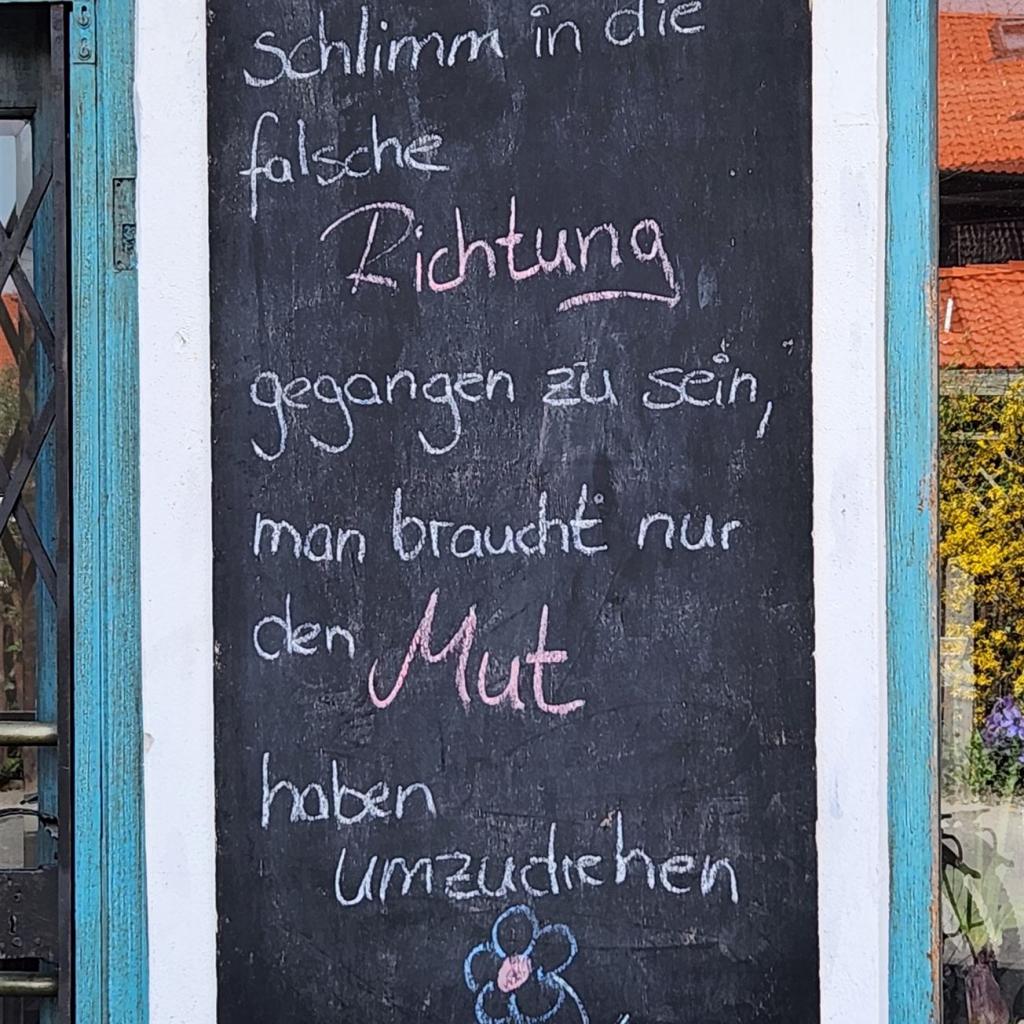 schlimm in die
falsche
Richtung
gegangen zu sein,
man braucht nur
den Mut
haben
umzudrehen